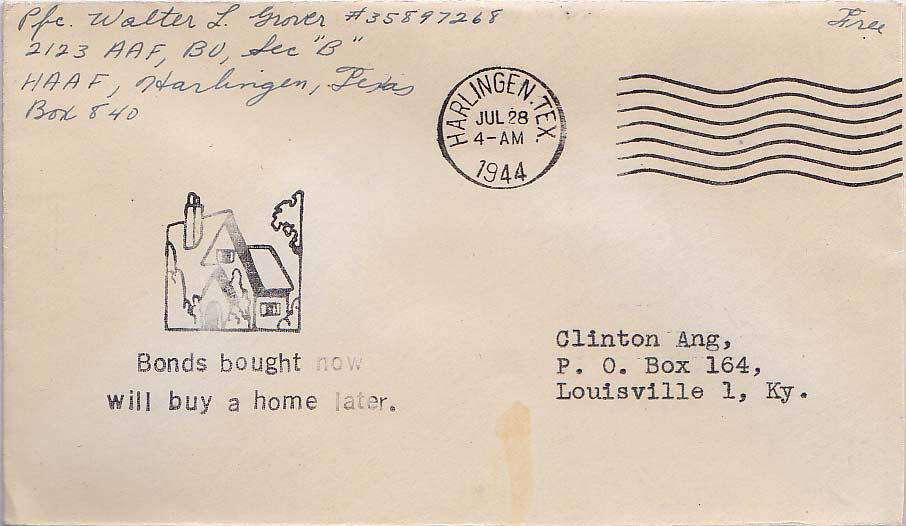 Pfc. Walter L. Grover #35897268
Free
2123 AAF, BU, Sec "B"
HAAF, Harlingen, Texas
Box 840
HARLINGEN. TEX.
JUL 28
4-AM
1944
Bonds bought now
will buy a home later.
Clinton Ang,
P. O. Box 164,
Louisville 1, Ky.